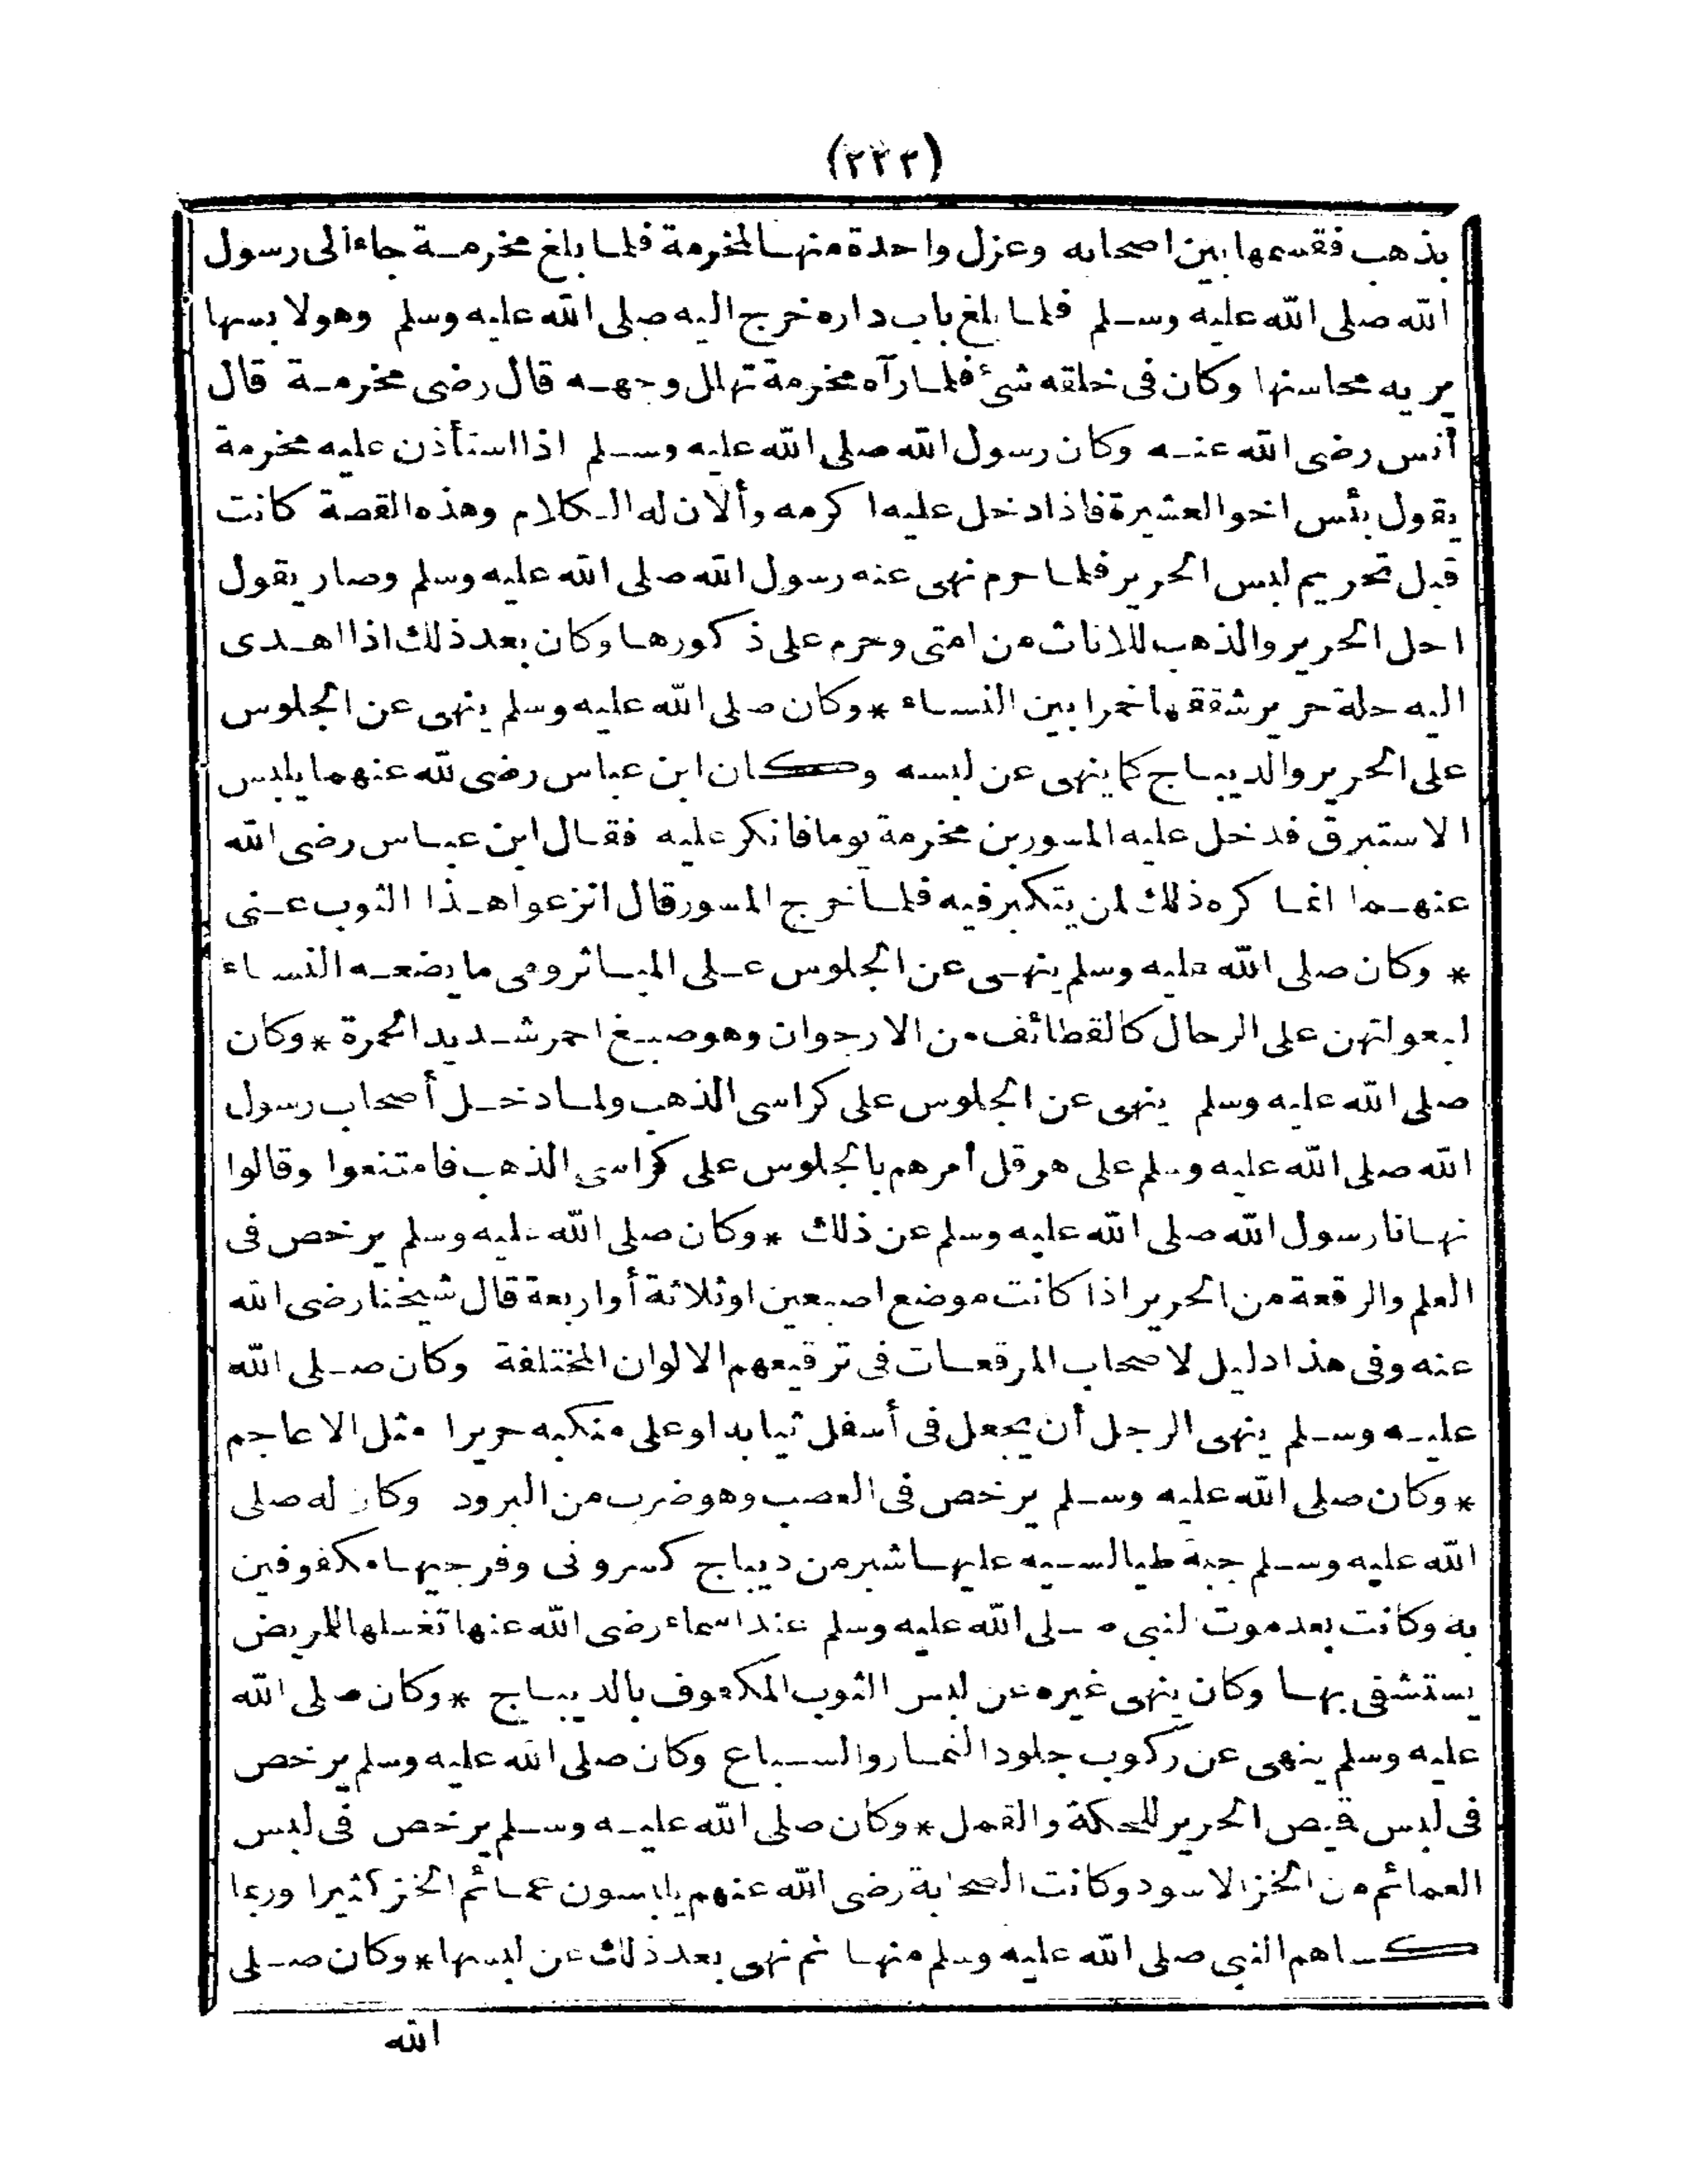 (٢٢٣)
بذهب فقسمها بين اصحابه وعزل واحدة منها لمخرمة فلما بلغ مخرمة جاء الى رسول
الله صلى الله عليه وسلم فلما بلغ باب داره خرج اليه صلى الله عليه وسلم وهو لابسها
يريه محاسنها وكان فى خلقه شئ فلما رآه مخرمة تهلل وجهه قال رضى مخرمة قال
أنس رضى الله عنه وكان رسول الله صلى الله عليه وسلم اذا استأذن عليه مخرمة
يقول بئس اخو العشيرة فاذا دخل عليه اكرمه وألان له الكلام وهذه القصة كانت
قبل تحريم لبس الحرير فلما حرم نهى عنه رسول الله صلى الله عليه وسلم وصار يقول
احل الحرير والذهب للاناث من امتى وحرم على ذكورها وكان بعد ذلك اذا اهدى
اليه حلة حرير شققها خمرا بين النساء * وكان صلى الله عليه وسلم ينهى عن الجلوس
على الحرير والديباج كما ينهى عن لبسه وكان ابن عباس رضى لله عنهما يلبس
الاستبرق فدخل عليه المسور بن مخرمة يوما فانكر عليه فقال ابن عباس رضى الله
عنهما انما كره ذلك لمن يتكبر فيه فلما خرج المسور قال انزعوا هذا الثوب عنى
* وكان صلى الله عليه وسلم ينهى عن الجلوس على المياثر وهى ما يضعه النساء
لبعولتهن على الرحال كالقطائف من الارجوان وهو صبغ احمر شديد الحمرة * وكان
صلى الله عليه وسلم ينهى عن الجلوس على كراسى الذهب ولما دخل أصحاب رسول
الله صلى الله عليه وسلم على هرقل أمرهم بالجلوس على كراسى الذهب فامتنعوا وقالوا
نهانا رسول الله صلى الله عليه وسلم عن ذلك * وكان صلى الله عليه وسلم يرخص فى
العلم والرقعة من الحرير اذا كانت موضع اصبعين او ثلاثة أو اربعة قال شيخنا رضى الله
عنه وفى هذا دليل لاصحاب المرقعات فى ترقيعهم الالوان المختلفة وكان صلى الله
عليه وسلم ينهى الرجل أن يجعل فى أسفل ثيابه او على منكبه حريرا مثل الاعاجم
* وكان صلى الله عليه وسلم يرخص فى العصب وهو ضرب من البرود وكان له صلى
الله عليه وسلم جبة طيالسيه عليها شبر من ديباج كسروانى وفرجيها مكفوفين
به وكانت بعد موت النبى صلى الله عليه وسلم عند اسماء رضى الله عنها تغسلها للمريض
يستشفى بها وكان ينهى غيره عن لبس الثوب المكفوف بالديباج * وكان صلى الله
عليه وسلم ينهى عن ركوب جلود النمار والسباع وكان صلى الله عليه وسلم يرخص
فى لبس قيص الحرير للحكة والقمل * وكان صلى الله عليه وسلم يرخص فى لبس
العمائم من الخز الاسود وكانت الصحابة رضى الله عنهم يلبسون عمائم الخز كثيرا وربما
كساهم النبى صلى الله عليه وسلم منها ثم نهى بعد ذلك عن لبسها * وكان صلى
الله